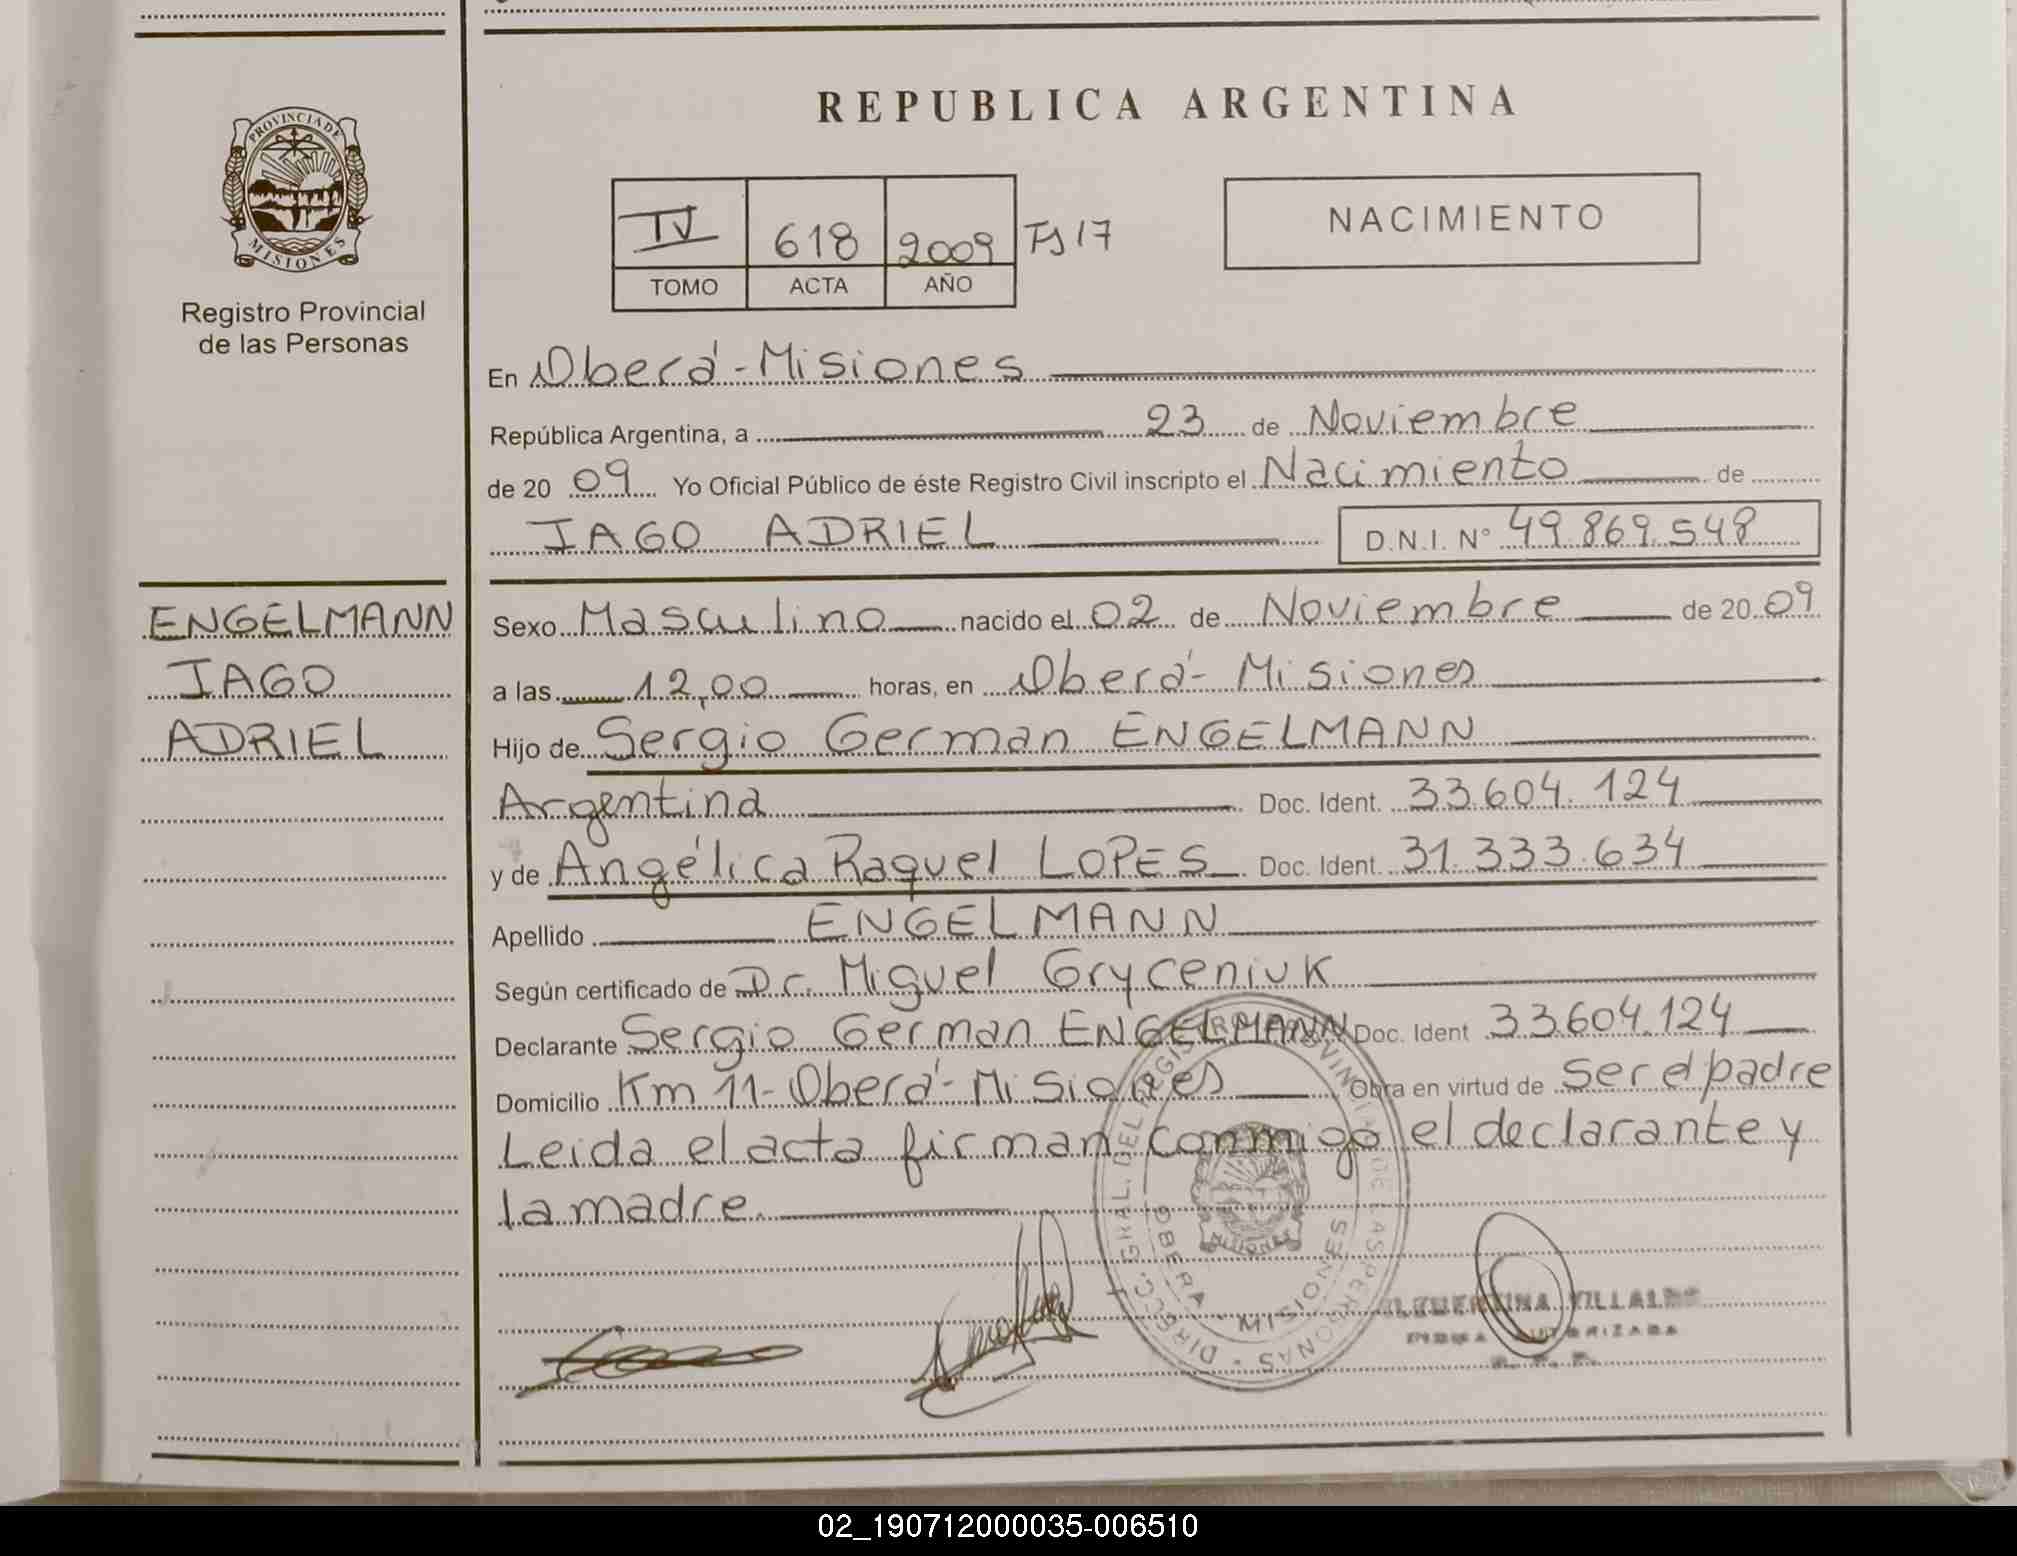 REPUBLICA ARGENTINA
PROVINCIA DE
MISIONES
Registro Provincial
de las Personas
IV 618 2009 TS17
TOMO ACTA AÑO
NACIMIENTO
En Oberá-Misiones
República Argentina, a 23 de Noviembre
de 20 09 Yo Oficial Público de éste Registro Civil inscripto el Nacimiento de
IAGO ADRIEL D.N.I. N° 49.869.548
ENGELMANN
IAGO
ADRIEL
Sexo Masculino nacido el 02 de Noviembre de 20 09
a las 12,00 horas, en Oberá- Misiones
Hijo de Sergio German ENGELMANN
Argentina Doc. Ident. 33.604.124
y de Angélica Raquel LOPES Doc. Ident. 31.333.634
Apellido ENGELMANN
Según certificado de Dr. Miguel Gryceniuk
Declarante Sergio German ENGELMANN Doc. Ident 33.604.124
Domicilio Km 11-Oberá-Misiones Obra en virtud de ser el padre
Leida el acta firman conmigo el declarante y
la madre.
DIRECC. GRAL. DEL REGISTRO PROVINCIAL DE LAS PERSONAS
MISIONES
OBERA - MISIONES
AUTORIZADA
02_190712000035-006510